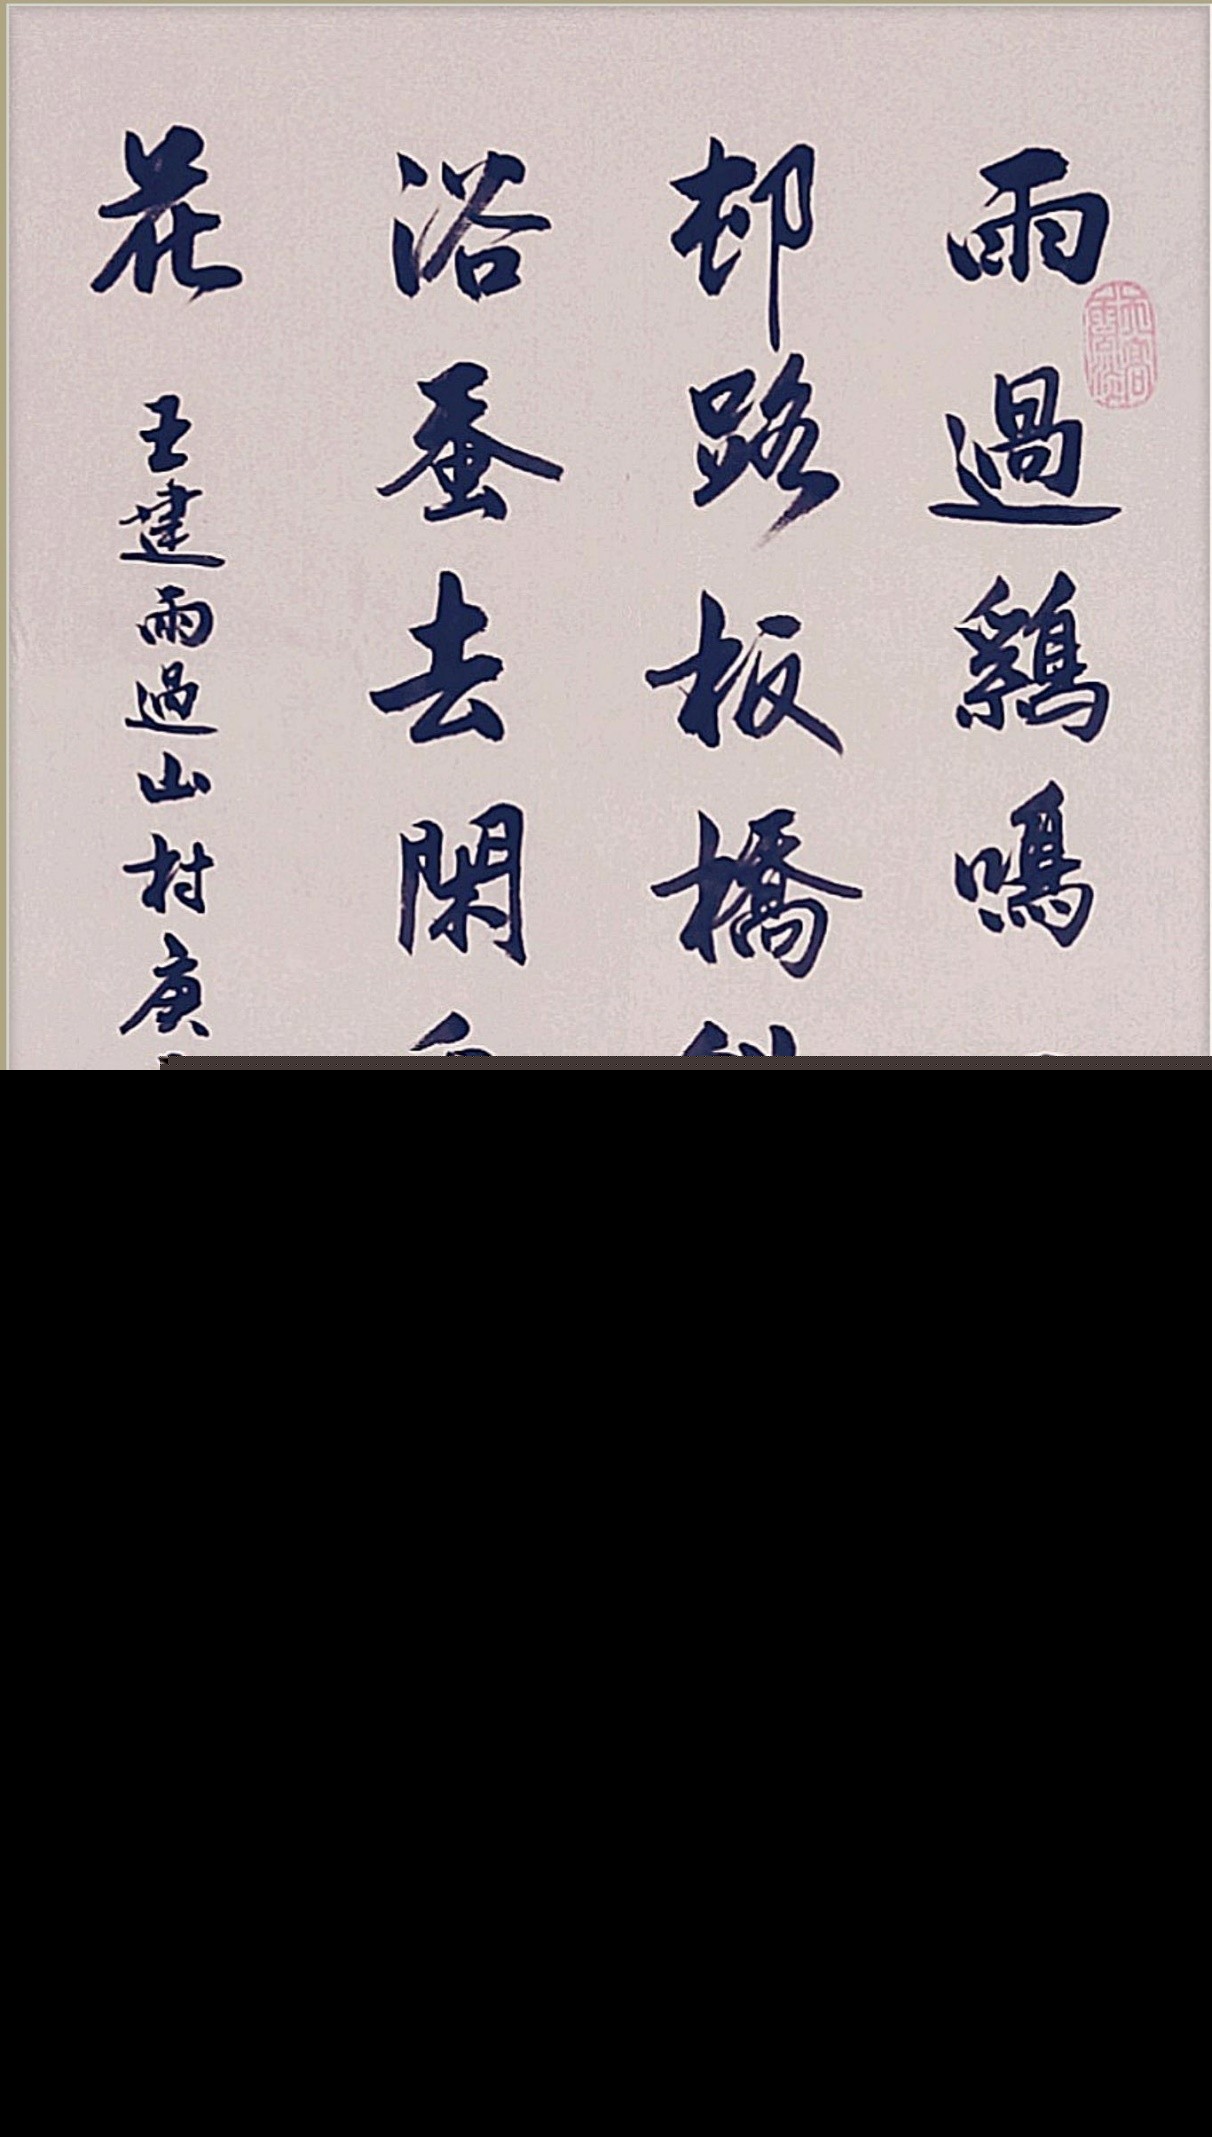 雨過鷄鳴
邨路板橋
浴蚕去閑
花
王建雨過山村庚